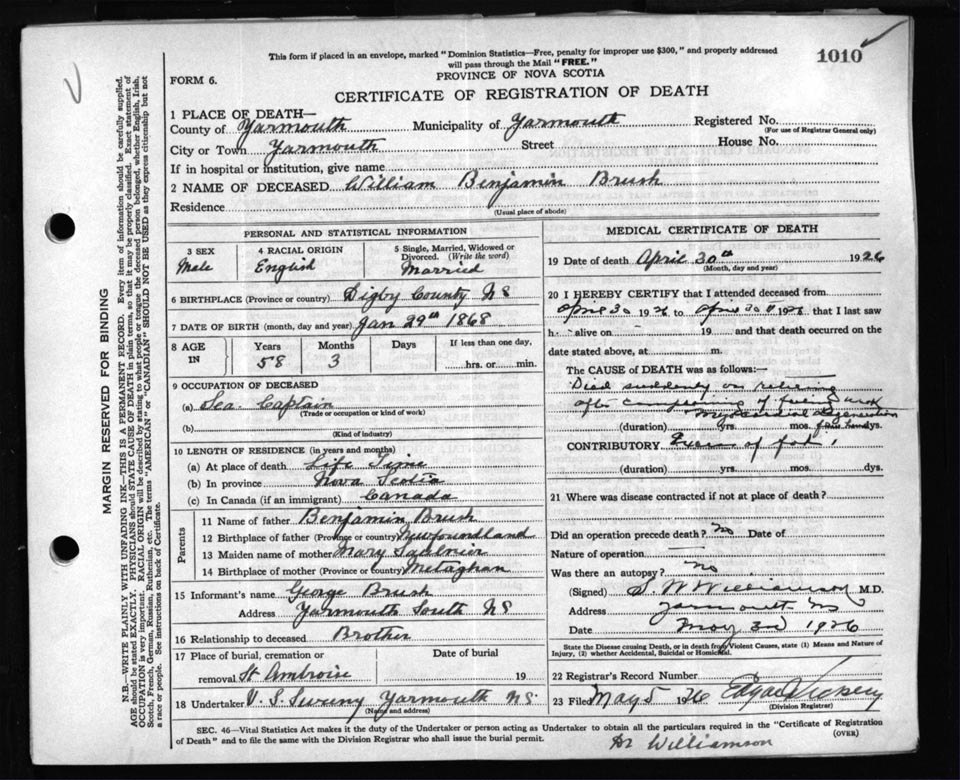 This form if placed in an envelope, marked "Dominion Statistics—Free, penalty for improper use $300," and properly addressed
will pass through the Mail "FREE."
1010
FORM 6.
PROVINCE OF NOVA SCOTIA
CERTIFICATE OF REGISTRATION OF DEATH
1 PLACE OF DEATH—
County of Yarmouth Municipality of Yarmouth Registered No.
(For use of Registrar General only)
City or Town Yarmouth Street House No.
If in hospital or institution, give name
2 NAME OF DECEASED William Benjamin Brush
Residence
(Usual place of abode)
PERSONAL AND STATISTICAL INFORMATION
3 SEX
Male
4 RACIAL ORIGIN
English
5 Single, Married, Widowed or
Divorced. (Write the word)
Married
6 BIRTHPLACE (Province or country) Digby County NS
7 DATE OF BIRTH (month, day and year) Jan 29th 1868
8 AGE
IN
Years
58
Months
3
Days
If less than one day,
hrs. or min.
9 OCCUPATION OF DECEASED
(a) Sea Captain
(Trade or occupation or kind of work)
(b)
(Kind of industry)
10 LENGTH OF RESIDENCE (in years and months)
(a) At place of death Life Time
(b) In province Nova Scotia
(c) In Canada (if an immigrant) Canada
Parents
11 Name of father Benjamin Brush
12 Birthplace of father (Province or country) Newfoundland
13 Maiden name of mother Mary Saulnier
14 Birthplace of mother (Province or country) Metaghan
15 Informant's name George Brush
Address Yarmouth South NS
16 Relationship to deceased Brother
17 Place of burial, cremation or Date of burial
removal St Ambroise 19
18 Undertaker V. S. Sweeny Yarmouth NS.
(Name and address)
MEDICAL CERTIFICATE OF DEATH
19 Date of death April 30th 1926
(Month, day and year)
20 I HEREBY CERTIFY that I attended deceased from
April 30 1926 to April 30th 1926 that I last saw
h alive on 19 and that death occurred on the
date stated above, at m.
The CAUSE of DEATH was as follows:—
Died suddenly on retiring
after complaining of feeling
Myocardial degeneration
(duration) yrs. mos. few hours dys.
CONTRIBUTORY of fat
(duration) yrs. mos. dys.
21 Where was disease contracted if not at place of death?
Did an operation precede death? No Date of
Nature of operation
Was there an autopsy? No
(Signed) S. W Williamson M.D.
Address Yarmouth NS
Date May 3rd 1926
State the Disease causing Death, or in death from Violent Causes, state (1) Means and Nature of
Injury, (2) whether Accidental, Suicidal or Homicidal.
22 Registrar's Record Number
23 Filed May 5 1926 Edgar Vickery
(Division Registrar)
SEC. 46—Vital Statistics Act makes it the duty of the Undertaker or person acting as Undertaker to obtain all the particulars required in the "Certificate of Registration
of Death" and to file the same with the Division Registrar who shall issue the burial permit.
(OVER)
Dr Williamson
MARGIN RESERVED FOR BINDING
N.B.—WRITE PLAINLY WITH UNFADING INK—THIS IS A PERMANENT RECORD. Every item of information should be carefully supplied.
AGE should be stated EXACTLY. PHYSICIANS should STATE CAUSE OF DEATH in plain terms, so that it may be properly classified. Exact statement of
OCCUPATION is very important. RACIAL ORIGIN will be described by stating to what people or tongue the deceased person belonged, whether English, Irish,
Scotch, French, German, Russian, Ruthenian, etc. The terms "AMERICAN" or "CANADIAN" SHOULD NOT BE USED as they express citizenship but not
a race or people. See instructions on back of Certificate.